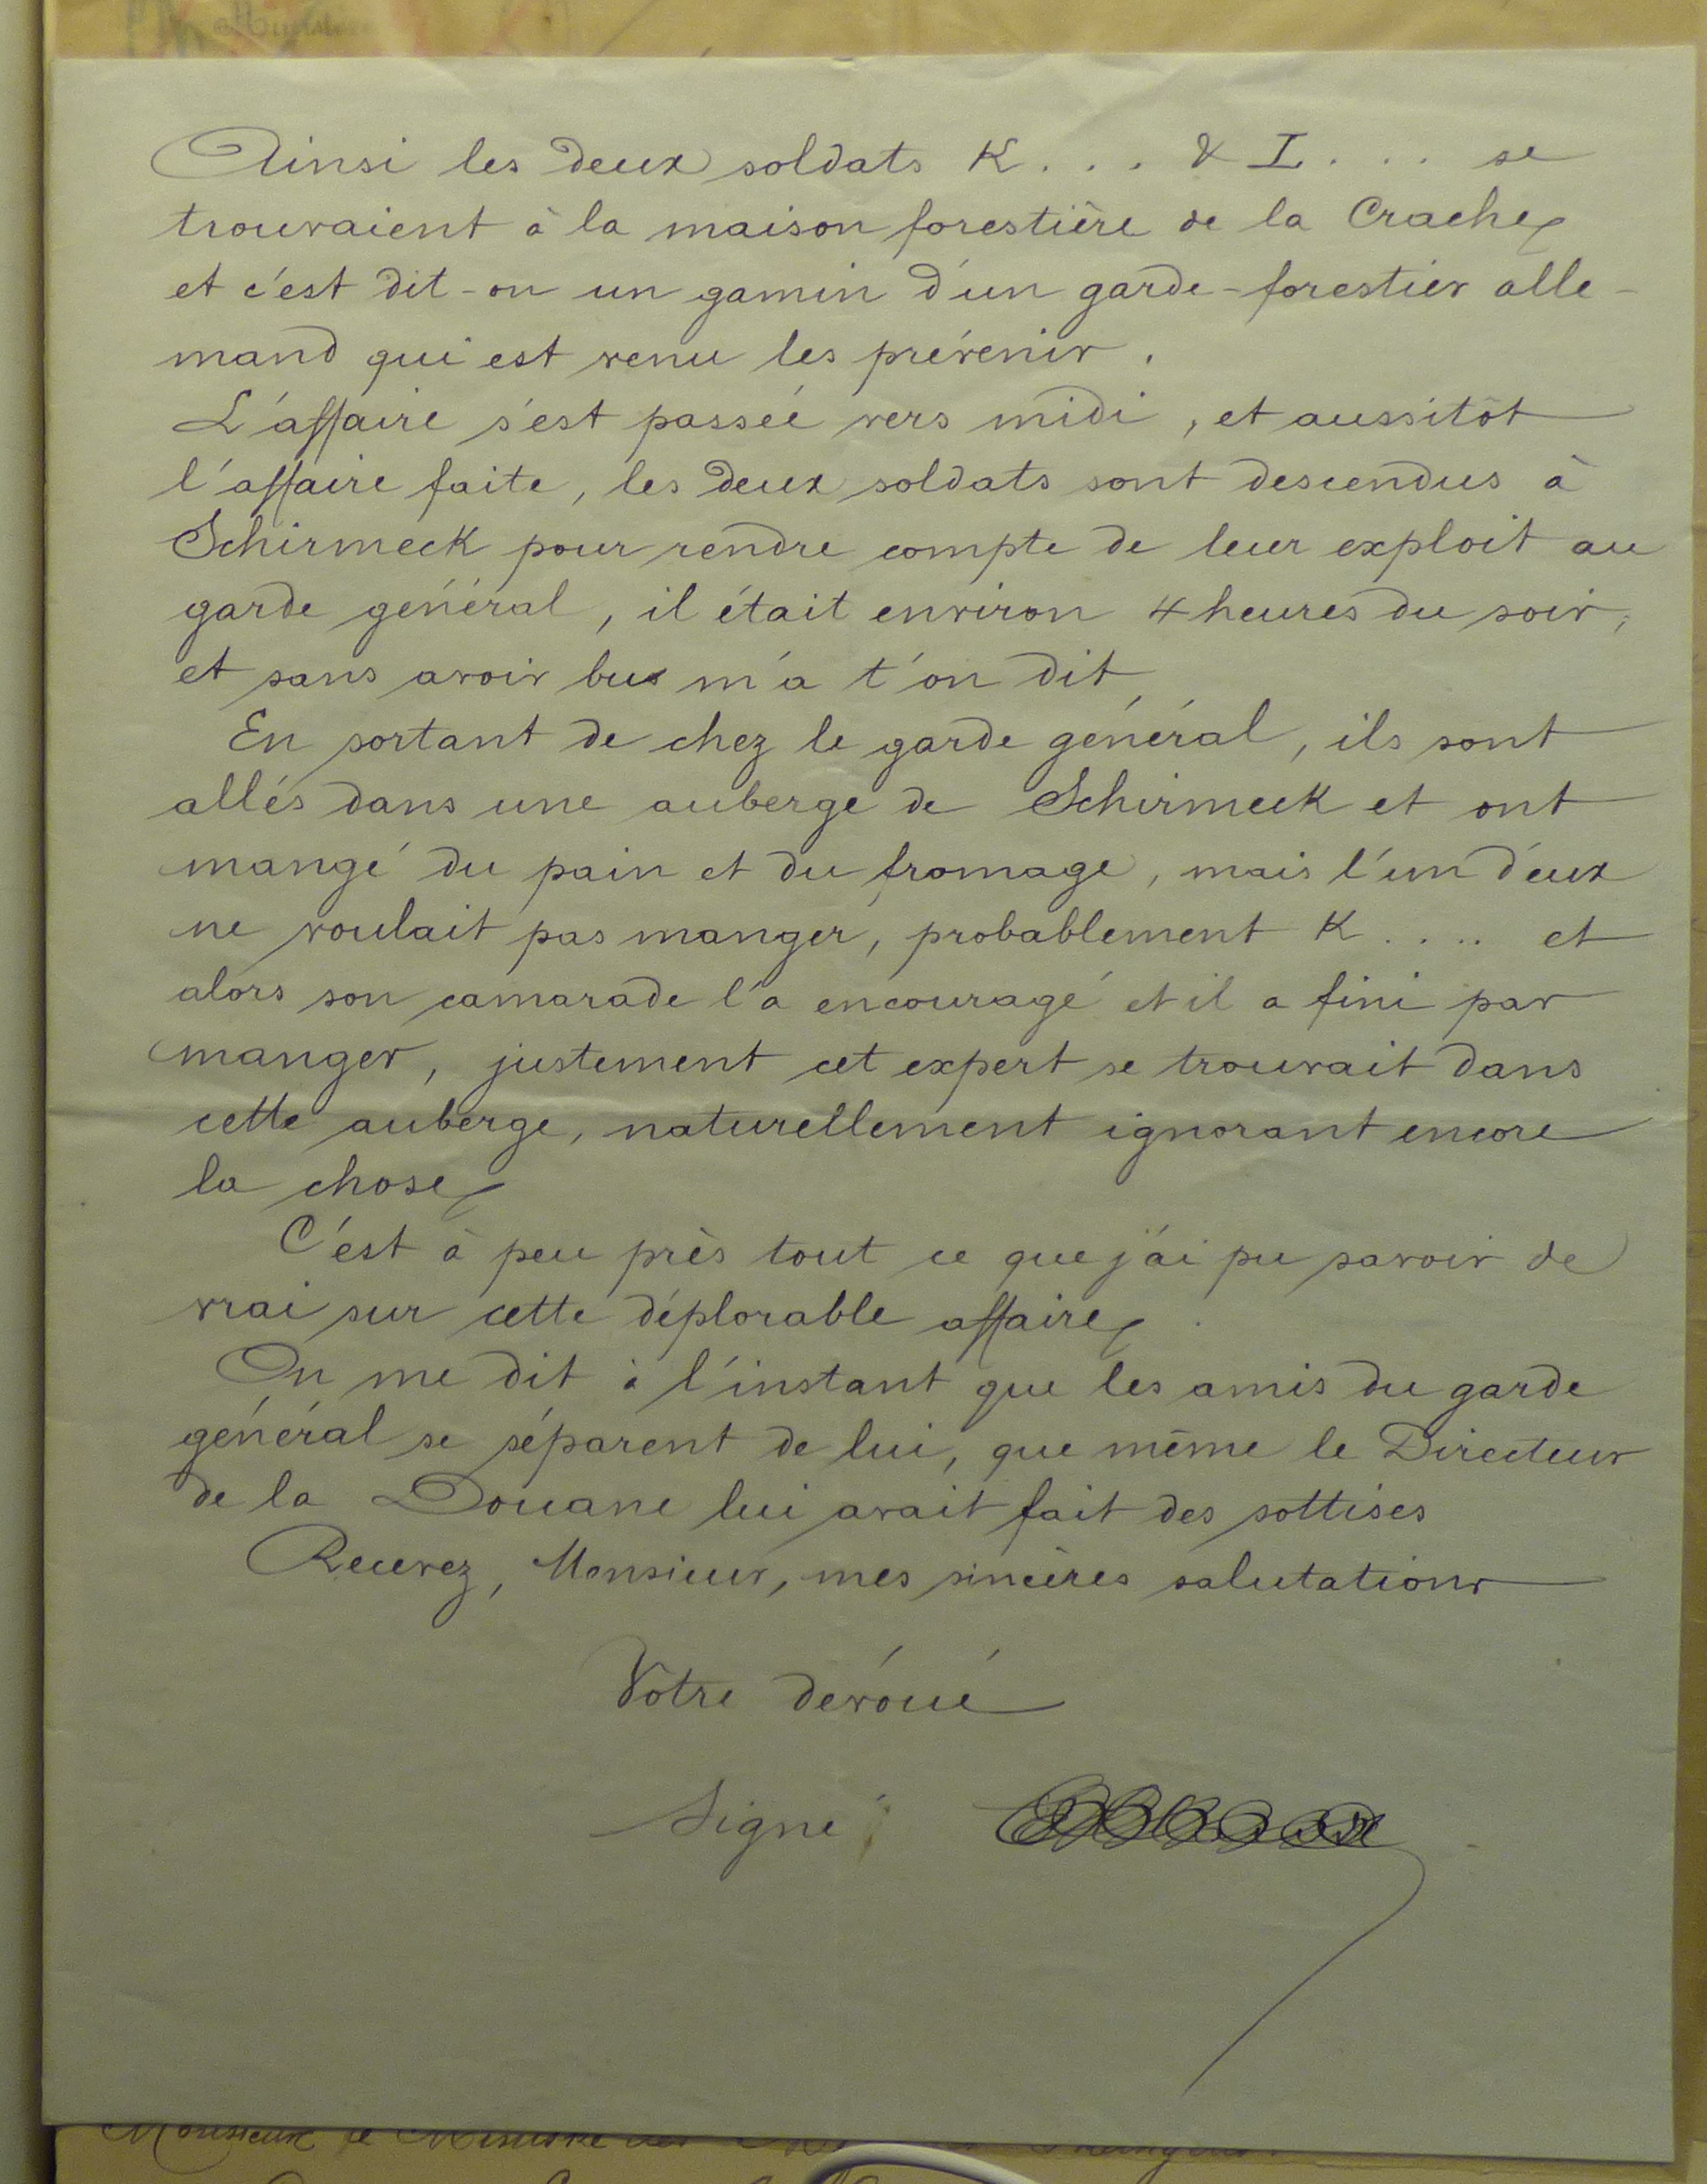 Ainsi les deux soldats K . . . & I . . . . se
trouvaient à la maison forestière de la Crache
et c'est dit-on un gamin d'un garde-forestier alle-
mand qui est venu les prévenir.
L'affaire s'est passée vers midi, et aussitôt
l'affaire faite, les deux soldats sont descendus à
Schirmeck pour rendre compte de leur exploit au
garde général, il était environ 4 heures du soir,
et sans avoir bu m'a t'on dit
En sortant de chez le garde général, ils sont
allés dans une auberge de Schirmeck et ont
mangé du pain et du fromage, mais l'un d'eux
ne voulait pas manger, probablement K . . . . et
alors son camarade l'a encouragé et il a fini par
manger, justement cet expert se trouvait dans
cette auberge, naturellement ignorant encore
la chose
C'est à peu près tout ce que j'ai pu savoir de
vrai sur cette déplorable affaire
On me dit à l'instant que les amis du garde
général se séparent de lui, que même le Directeur
de la Douane lui avait fait des sottises
Recevez, Monsieur, mes sincères salutations
Votre dévoué
Signé :
Monsieur le Ministre des